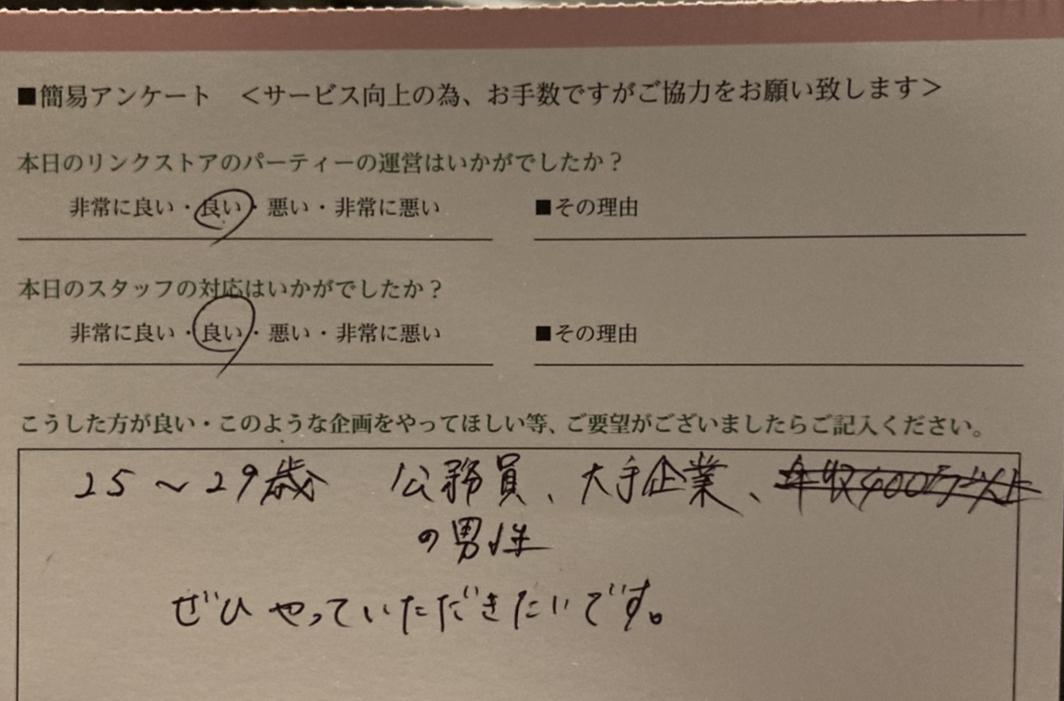 ■簡易アンケート ＜サービス向上の為、お手数ですがご協力をお願い致します＞
本日のリンクストアのパーティーの運営はいかがでしたか？
非常に良い・良い・悪い・非常に悪い ■その理由
本日のスタッフの対応はいかがでしたか？
非常に良い・良い・悪い・非常に悪い ■その理由
こうした方が良い・このような企画をやってほしい等、ご要望がございましたらご記入ください。
25～29歳 公務員、大手企業、年収400万以上
の男性
ぜひやっていただきたいです。